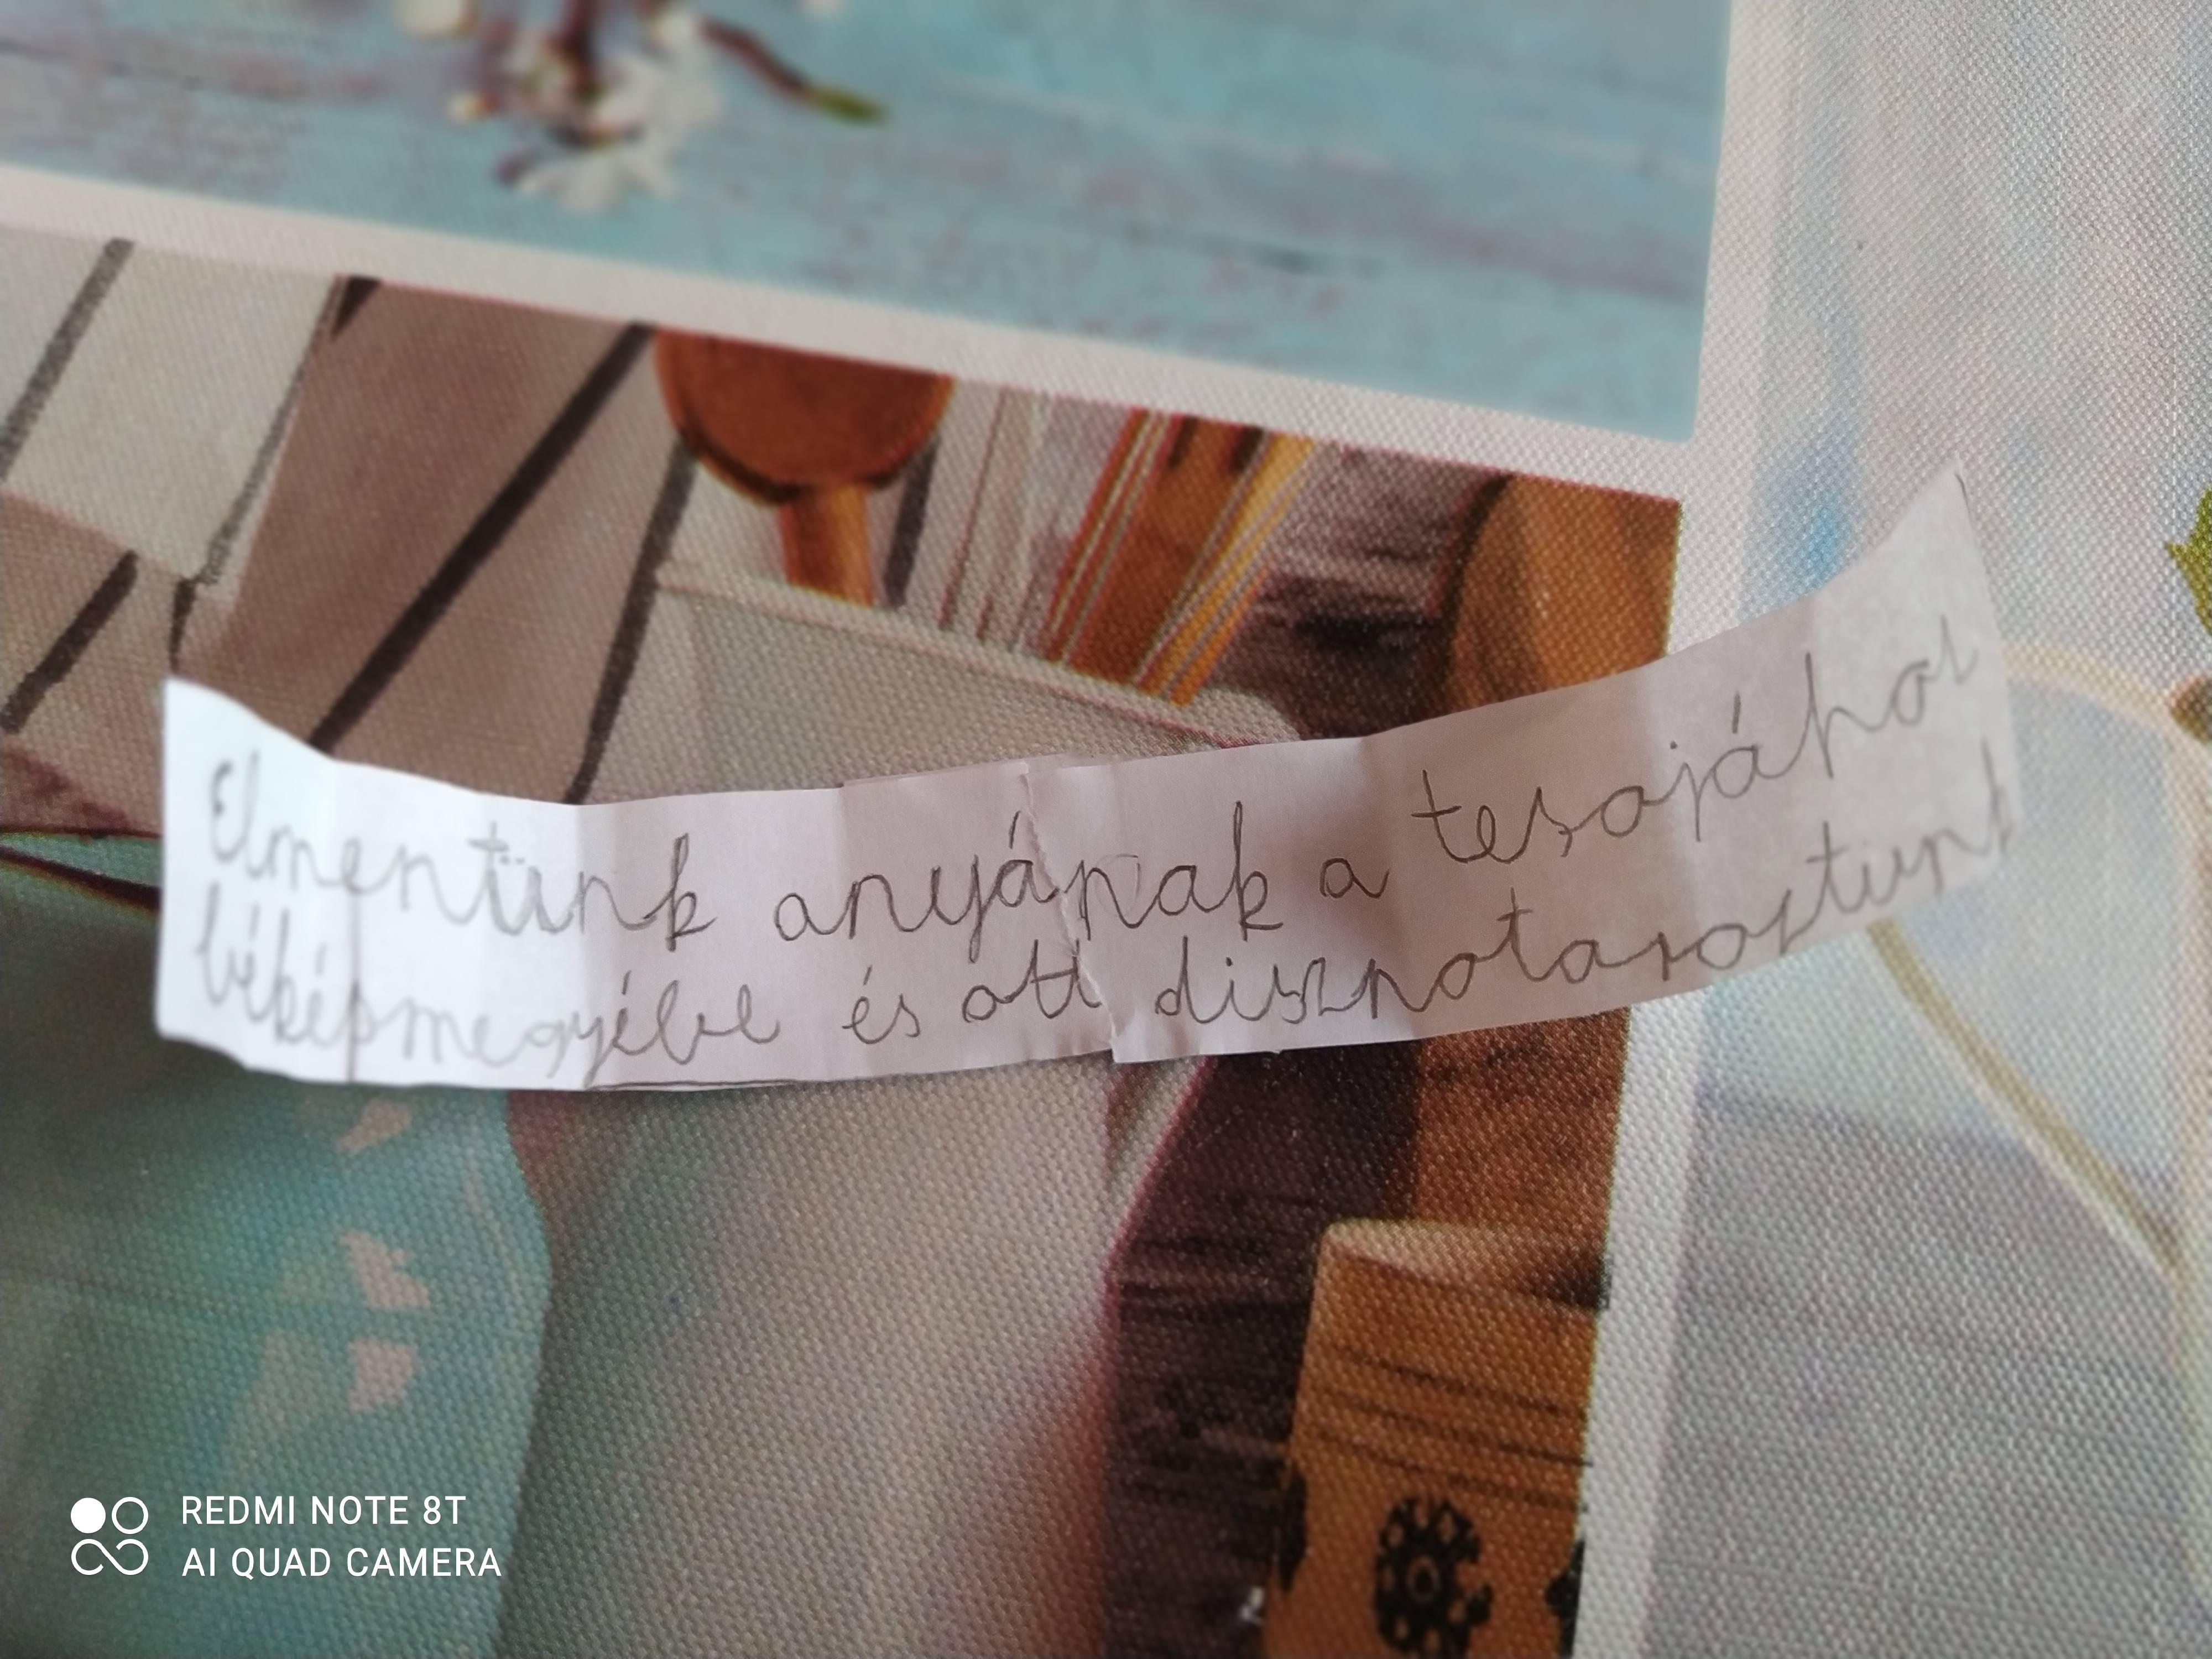 Elmentünk anyának a tesojáhol
békésmegyébe és ott disznotaroztunk
REDMI NOTE 8T
AI QUAD CAMERA